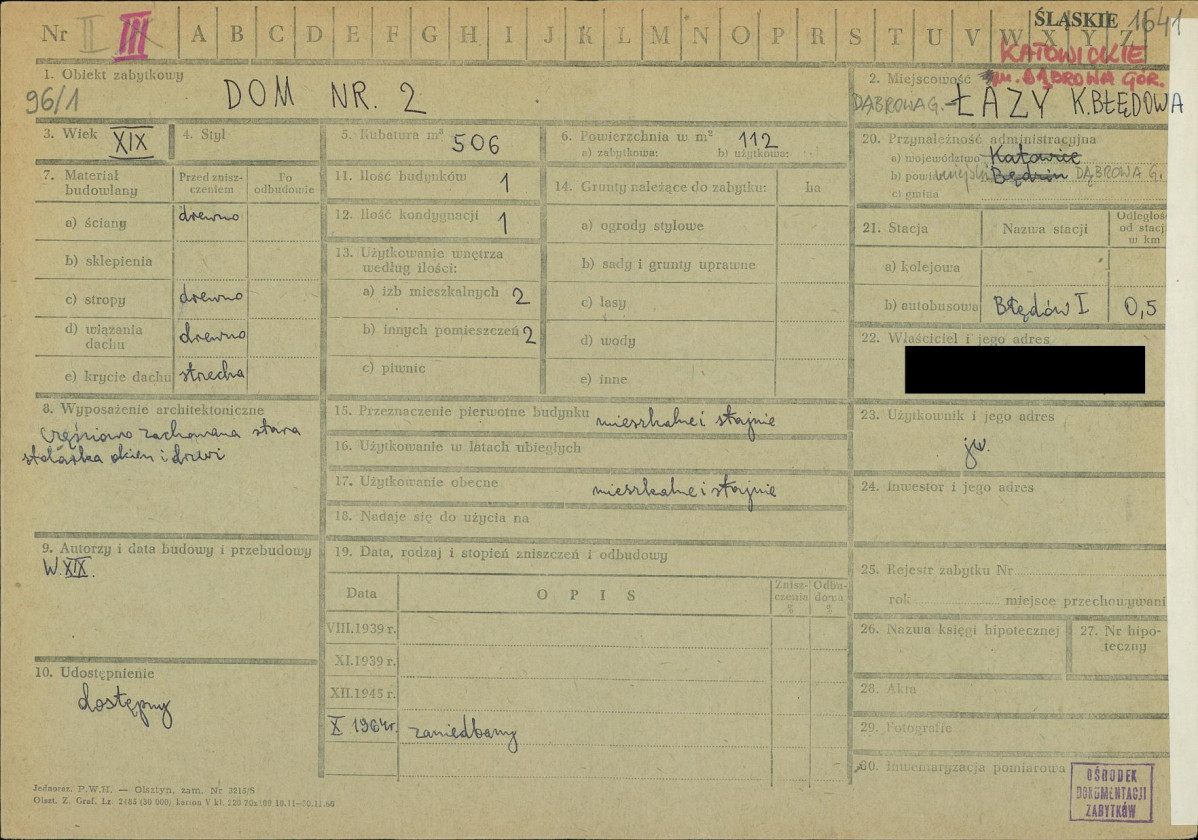 Nr I III A B C D E F G H I J K L M N O P R S T U V W X Y Z
ŚLĄSKIE 1641
KATOWICKIE
1. Obiekt zabytkowy
96/1
DOM NR. 2
2. Miejscowość
m. DĄBROWA GÓR.
DĄBROWA G. - ŁAZY K.BŁĘDOWA
3. Wiek XIX
4. Styl
5. Kubatura m³ 506
6. Powierzchnia w m² 112
a) zabytkowa: b) użytkowa:
7. Materiał budowlany
Przed znisz-
czeniem
Po
odbudowie
a) ściany drewno
b) sklepienia
c) stropy drewno
d) wiązania
dachu drewno
e) krycie dachu strzecha
8. Wyposażenie architektoniczne
częściowo zachowana stara
stolarka okien i drzwi
9. Autorzy i data budowy i przebudowy
W. XIX.
10. Udostępnienie
dostępny
11. Ilość budynków 1
12. Ilość kondygnacji 1
13. Użytkowanie wnętrza
według ilości:
a) izb mieszkalnych 2
b) innych pomieszczeń 2
c) piwnic
14. Grunty należące do zabytku: ha
a) ogrody stylowe
b) sady i grunty uprawne
c) lasy
d) wody
e) inne
15. Przeznaczenie pierwotne budynku mieszkalne i stajnie
16. Użytkowanie w latach ubiegłych
17. Użytkowanie obecne mieszkalne i stajnie
18. Nadaje się do użycia na
19. Data, rodzaj i stopień zniszczeń i odbudowy
Data
OPIS
Znisz-
czenia
%
Odbu-
dowa
%
VIII.1939 r.
XI.1939 r.
XII.1945 r.
X 1964r. zaniedbany
20. Przynależność administracyjna
a) województwo Katowice
b) powiat miejski Będzin DĄBROWA G.
c) gmina
21. Stacja
Nazwa stacji
Odległość
od stacji
w km
a) kolejowa
b) autobusowa Błędów I 0,5
22. Właściciel i jego adres
23. Użytkownik i jego adres
jw.
24. Inwestor i jego adres
25. Rejestr zabytku Nr
rok miejsce przechowywani
26. Nazwa księgi hipotecznej
27. Nr hipo-
teczny
28. Akta
29. Fotografie
30. Inwentaryzacja pomiarowa
OŚRODEK
DOKUMENTACJI
ZABYTKÓW
Jednoraz. P.W.H. — Olsztyn, zam. Nr 3215/S
Olszt. Z. Graf. Lz.